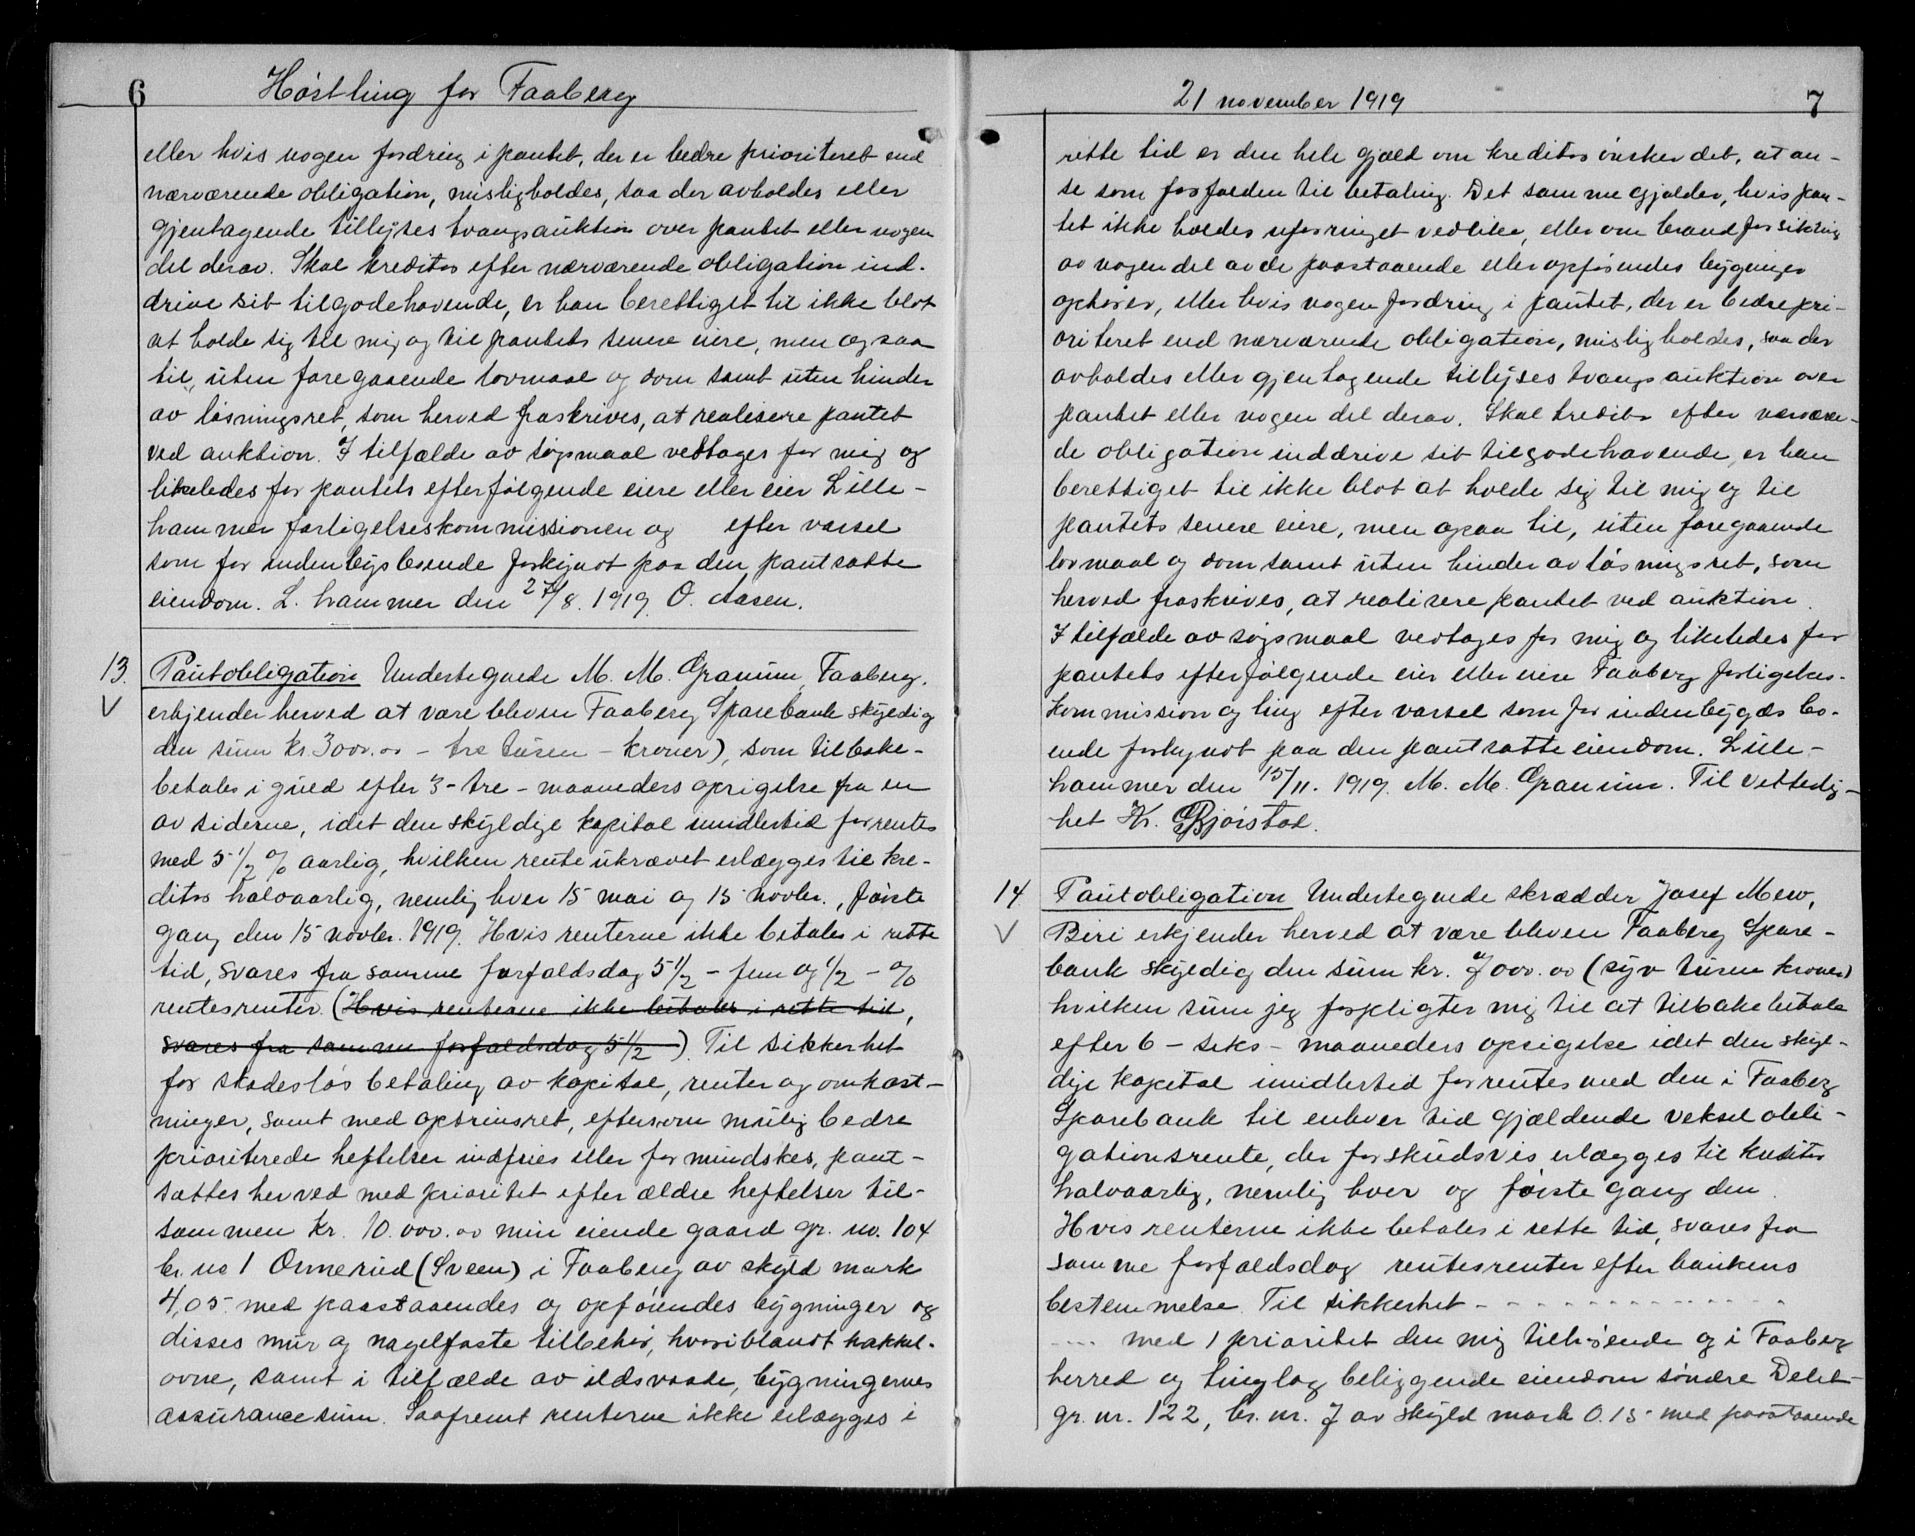 6 Høstting for Faaberg
eller hvis nogen fordring i pantet, der er bedre prioriteret end
nærværende obligation, misligholdes, saa der avholdes eller
gjentagende tillyses tvangsauktion over pantet eller nogen
del derav. Skal kreditor efter nærværende obligation ind-
drive sit tilgodehavende, er han berettiget til ikke blot
at holde sig til mig og til pantets senere eiere, men ogsaa
til, uten foregaaende lovmaal og dom samt uten hinder
av løsningsret, som herved fraskrives, at realisere pantet
ved auktion. I tilfælde av søgsmaal vedtages for mig og
likeledes for pantets efterfølgende eiere eller eier Lille-
hammer forligelseskommissionen og efter varsel
som for indenbygsboende forkyndt paa den pantsatte
eiendom. L. hammer den 27/8. 1919. O. Aasen.
13. Pantobligation Undertegnede M. M. Granum, Faaberg,
erkjender herved at være bleven Faaberg Sparebank skyldig
den sum kr. 3000.00 - tre tusen - kroner), som tilbake-
betales i guld efter 3 - tre - maaneders opsigelse fra en
av siderne, idet den skyldige kapital imidlertid forrentes
med 5 1/2 % aarlig, hvilken rente ukrævet erlægges til kre-
ditor halvaarlig, nemlig hver 15 mai og 15 novbr., første
gang den 15 novbr. 1919. Hvis renterne ikke betales i rette
tid, svares fra samme forfaldsdag 5 1/2 - fem og 1/2 - %
rentesrenter. (Hvis renterne ikke betales i rette tid,
svares fra samme forfaldsdag 5 1/2 ). Til sikkerhet
for skadesløs betaling av kapital, renter og omkost-
ninger, samt med optrinsret, eftersom mulig bedre
prioriterede heftelser indfries eller formindskes, pant-
sættes herved med prioritet efter ældre heftelser til-
sammen kr. 10.000.00 min eiende gaard gr. no. 104
br. no 1 Ormerud (Sveen) i Faaberg av skyld mark
4,05 med paastaaendes og opføiendes bygninger og
disses mur og nagelfaste tilbehør, hvoriblandt kakkel-
ovne, samt i tilfælde av ildsvaade, bygningernes
assurancesum. Saafremt renterne ikke erlægges i
21 november 1919 7
rette tid er den hele gjæld om kreditor ønsker det, at an-
se som forfalden til betaling. Det samme gjælder, hvis pan-
tet ikke holdes uforringet vedlike, eller om brandforsikring
av nogen del av de paastaaende eller opførendes bygninger
ophører, eller hvis nogen fordring i pantet, der er bedre pri-
oriteret end nærværende obligation, misligholdes, saa der
avholdes eller gjentagende tillyses tvangsauktion over
pantet eller nogen del derav. Skal kreditor efter nærværen-
de obligation inddrive sit tilgodehavende, er han
berettiget til ikke blot at holde sig til mig og til
pantets senere eiere, men ogsaa til, uten foregaaende
lovmaal og dom samt uten hinder av løsningsret, som
herved fraskrives, at realisere pantet ved auktion.
I tilfælde av søgsmaal vedtages for mig og likeledes for
pantets efterfølgende eier eller eiere Faaberg forligelses-
kommission og ting efter varsel som for indenbygds bo-
ende forkyndt paa den pantsatte eiendom. Lille-
hammer den 15/11. 1919. M. M. Granum. Til vitterlig-
het Kr. Bjørstad.
14 Pantobligation Undertegnede skrædder Josef Mew,
Biri erkjender herved at være bleven Faaberg Spare-
bank skyldig den sum kr. 7000.00 (syv tusen kroner)
hvilken sum jeg forpligter mig til at tilbakebetale
efter 6 - seks - maaneders opsigelse idet den skyl-
dige kapital imidlertid forrentes med den i Faaberg
Sparebank til enhver tid gjældende vekselobli-
gationsrente, der forskudsvis erlægges til kreditor
halvaarlig, nemlig hver og første gang den
Hvis renterne ikke betales i rette tid, svares fra
samme forfaldsdag rentesrenter efter bankens
bestemmelse. Til sikkerhet - - - - - - - - - -
---- med 1 prioritet den mig tilhørende og i Faaberg
herred og tinglag beliggende eiendom søndre Delet
gr. nr. 122, br. nr. 7 av skyld mark 0.15 med paastaaende